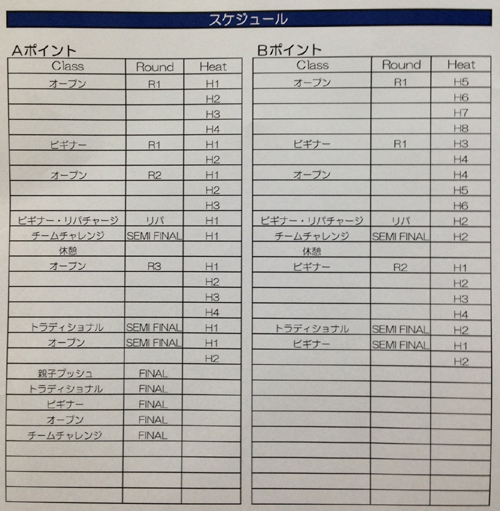 スケジュール
Aポイント
Class Round Heat
オープン R1 H1
H2
H3
H4
ビギナー R1 H1
H2
オープン R2 H1
H2
H3
ビギナー・リパチャージ リパ H1
チームチャレンジ SEMI FINAL H1
休憩
オープン R3 H1
H2
H3
H4
トラディショナル SEMI FINAL H1
オープン SEMI FINAL H1
H2
親子プッシュ FINAL
トラディショナル FINAL
ビギナー FINAL
オープン FINAL
チームチャレンジ FINAL
Bポイント
Class Round Heat
オープン R1 H5
H6
H7
H8
ビギナー R1 H3
H4
オープン H4
H5
H6
ビギナー・リパチャージ リパ H2
チームチャレンジ SEMI FINAL H2
休憩
ビギナー R2 H1
H2
H3
H4
トラディショナル SEMI FINAL H2
ビギナー SEMI FINAL H1
H2